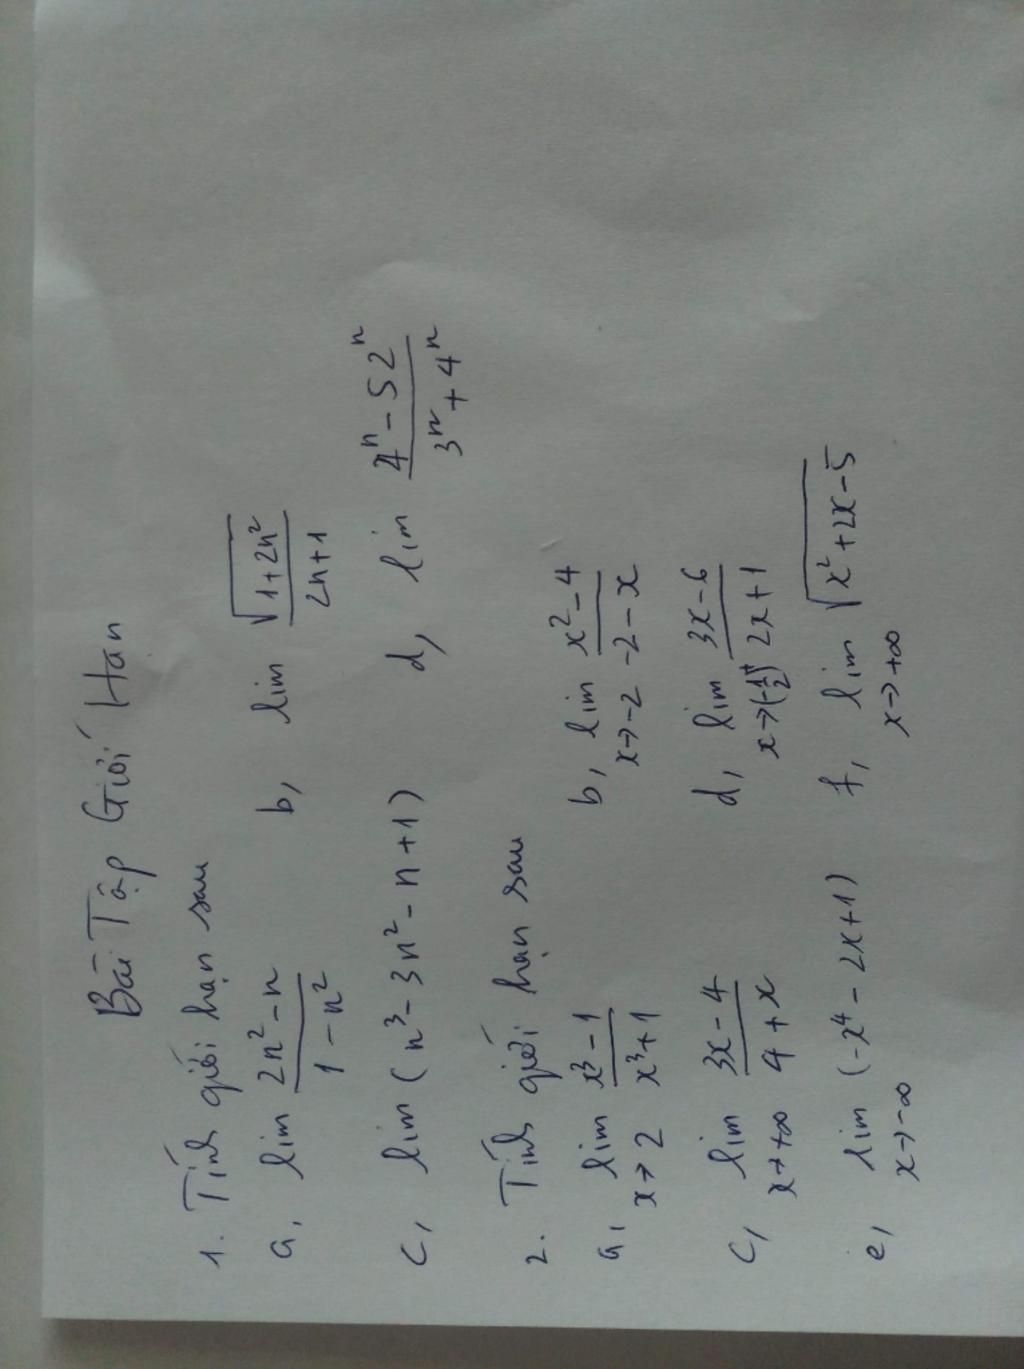 Bài Tập Giới Hạn
1. Tính giới hạn sau
a, lim (2n² - n)/(1 - n²) b, lim √(1+2n²)/(2n+1)
c, lim (n³ - 3n² - n + 1) d, lim (4ⁿ - 5 2ⁿ)/(3ⁿ + 4ⁿ)
2. Tính giới hạn sau
a, lim x→2 (x³ - 1)/(x³ + 1) b, lim x→-2 (x² - 4)/(-2 - x)
c, lim x→+∞ (3x - 4)/(4 + x) d, lim x→(-1/2)⁺ (3x - 6)/(2x + 1)
e, lim x→-∞ (-x⁴ - 2x + 1) f, lim x→+∞ √(x² + 2x - 5)